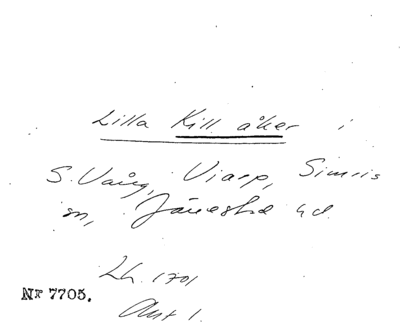 Lilla Kill åker i
S. Vång, Viarp, Simris
sn, Järrestad hd.
Lh. 1701
Nr 7705.
Akt 1.